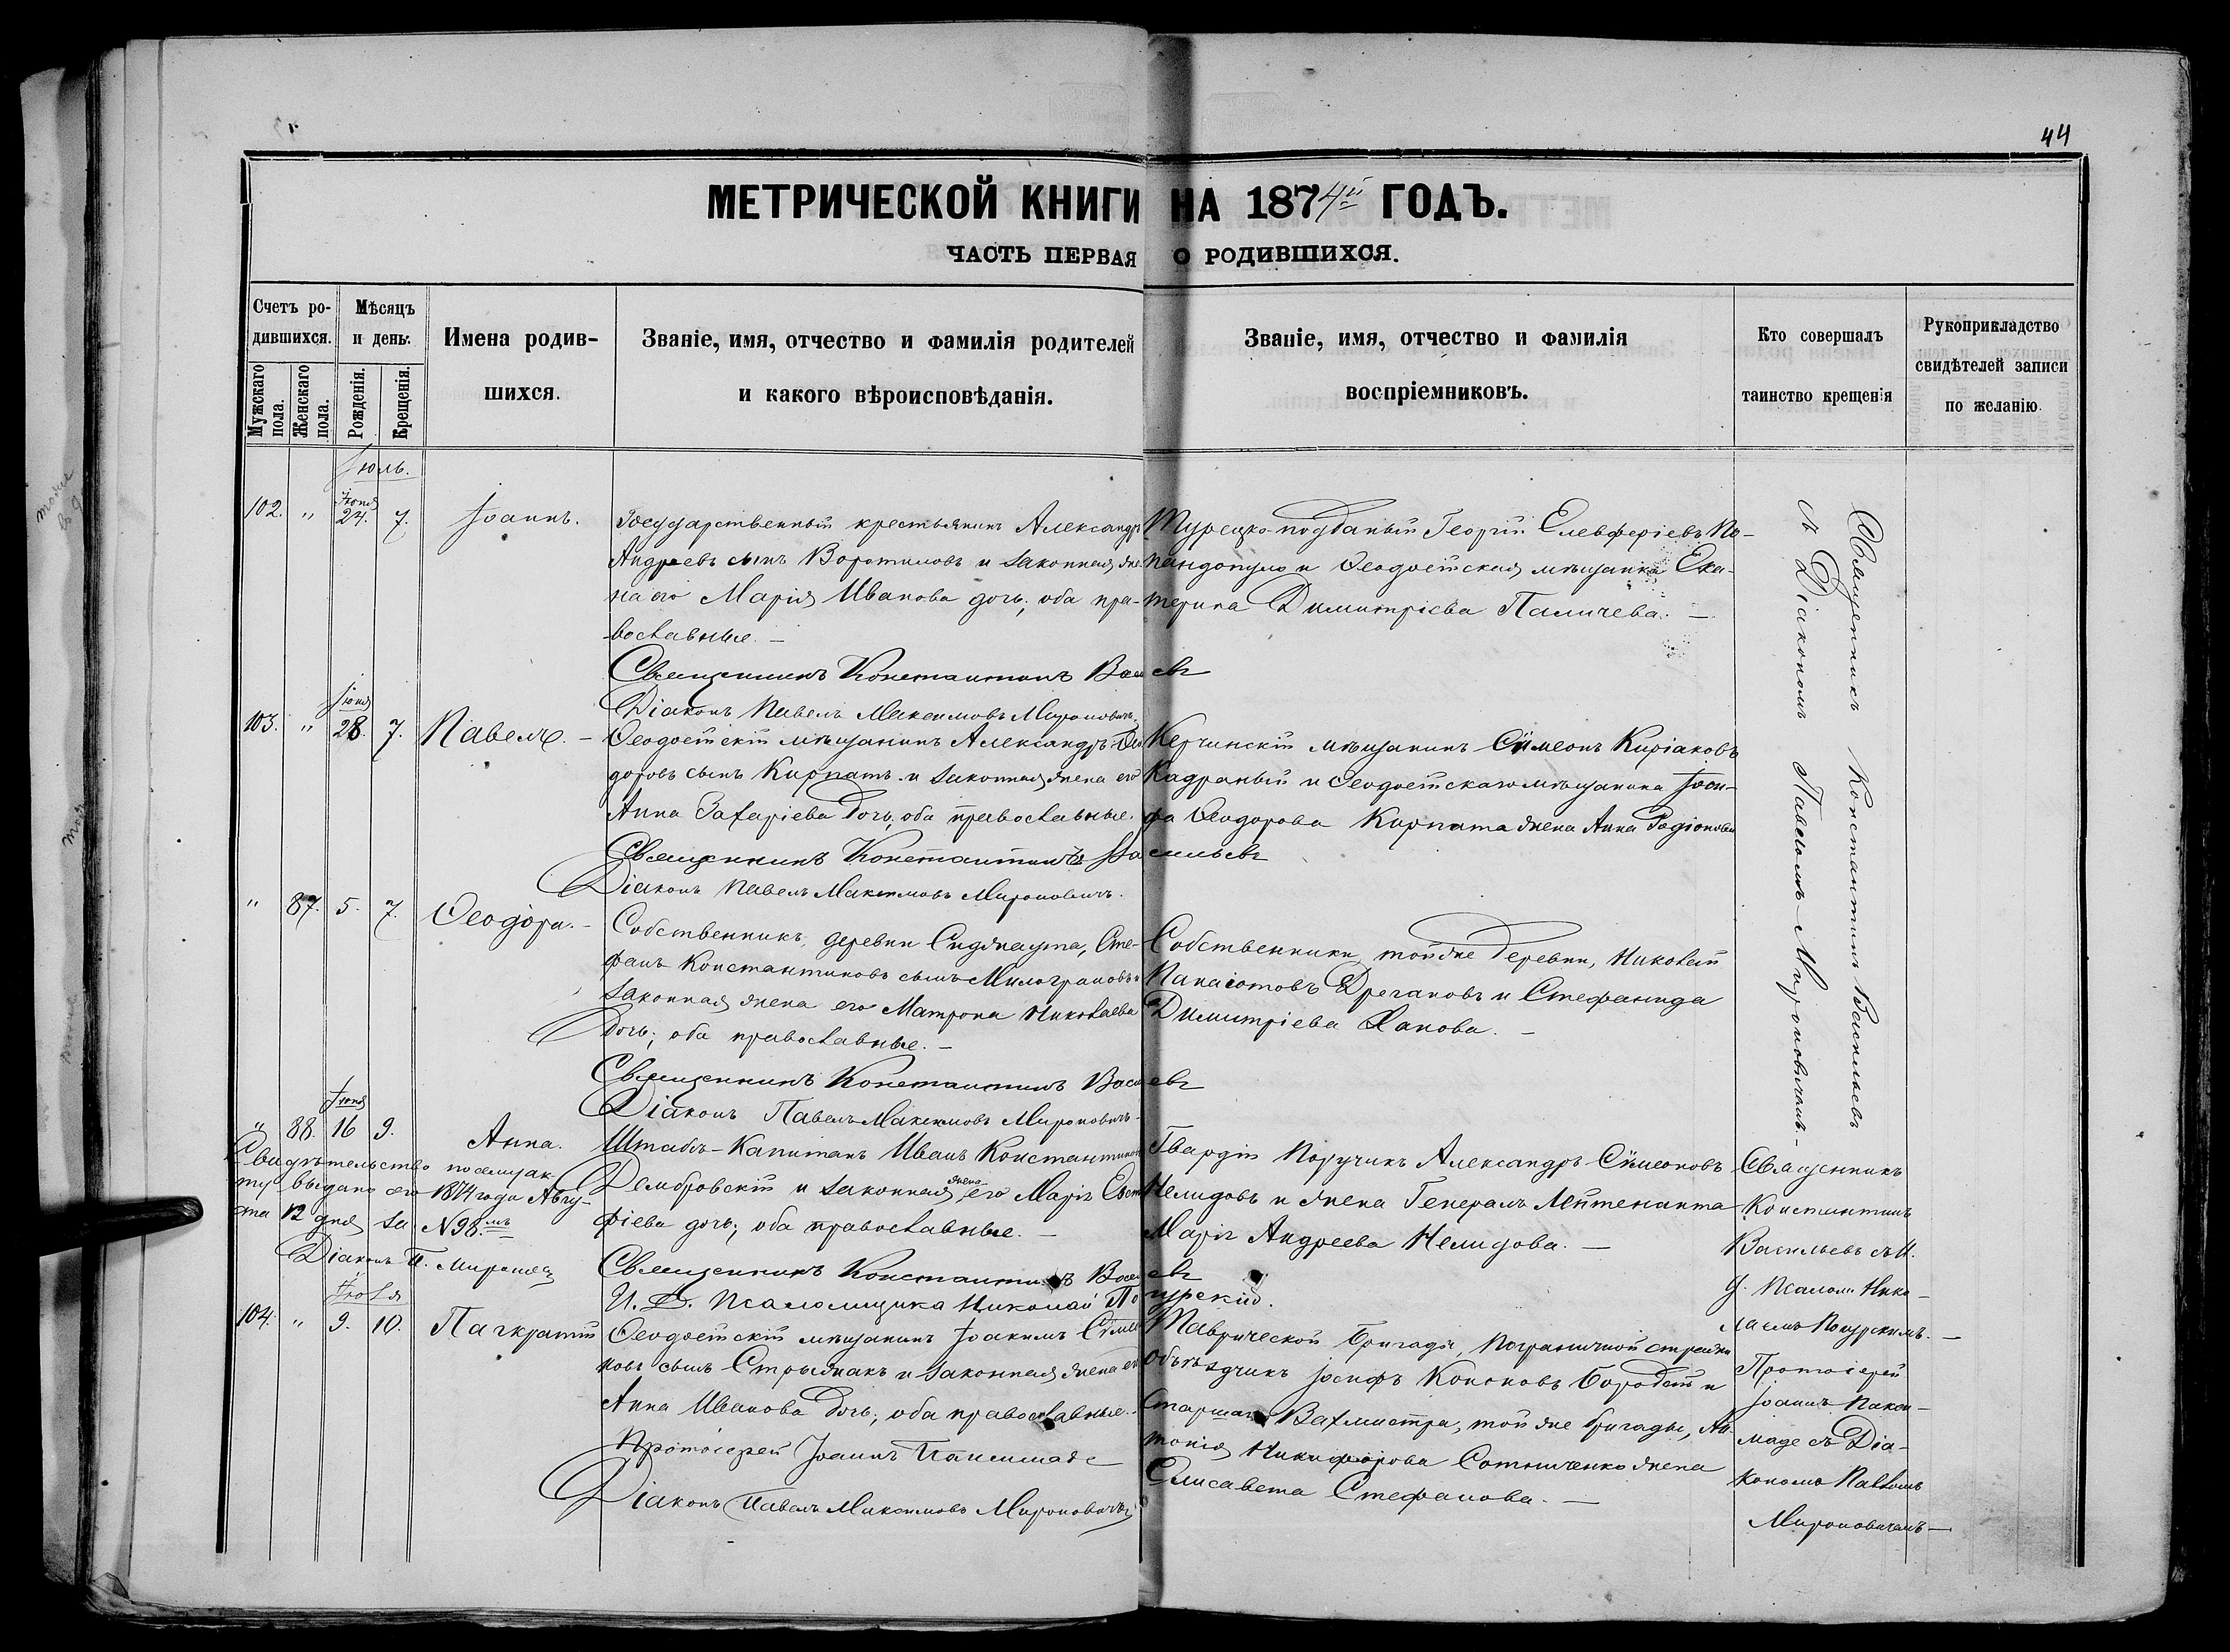 44
МЕТРИЧЕСКОЙ КНИГИ НА 1874й ГОДЪ.
ЧАСТЬ ПЕРВАЯ О РОДИВШИХСЯ.
Счетъ ро-
дившихся.
Мужскаго пола.
Женскаго пола.
Мѣсяцъ
и день.
Рожденія.
Крещенія.
Имена родив-
шихся.
Званіе, имя, отчество и фамилія родителей
и какого вѣроисповѣданія.
Званіе, имя, отчество и фамилія
воспріемниковъ.
Кто совершалъ
таинство крещенія
Рукоприкладство
свидѣтелей записи
по желанію.
Іюль.
102. " Іюня 24. 7. Іоаннъ.
Государственный крестьянинъ Александръ
Андреевъ сынъ Воротиловъ и законная же-
на его Марія Иванова дочь; оба пра-
вославные. —
Священникъ Константинъ Васильевъ
Діаконъ Павелъ Максимовъ Мироновичъ.
Турецко-подданый Георгій Елевферіевъ По-
пандопуло и Ѳеодосійская мѣщанка Ека-
терина Димитріева Паличева. —
103. " Іюня 28. 7. Павелъ. —
Ѳеодосійскій мѣщанинъ Александръ Ѳео
доровъ сынъ Кирпатъ и законная жена его
Анна Захаріева дочь, оба православные.
Священникъ Константинъ Васильевъ
Діаконъ Павелъ Максимовъ Мироновичъ.
Керчинскій мѣщанинъ Сѵмеонъ Киріаковъ
Кадраный и Ѳеодосійскаго мѣщанина Іоси-
фа Ѳеодорова Кирпата жена Анна Радіонова
" 87. 5. 7. Ѳеодора. —
Собственникъ, деревни Сиджаута, Сте-
фанъ Константиновъ сынъ Милограновъ и
законная жена его Матрона Николаева
дочь; оба православные. —
Священникъ Константинъ Васильевъ
Діаконъ Павелъ Максимовъ Мироновичъ.
Собственники, тойже деревни, Николай
Панаіотовъ Драгановъ и Стефанида
Димитріева Ханова. —
Священникъ Константинъ Васильевъ
съ Діакономъ Павломъ Мироновичемъ. —
" 88. Іюня 16 9. Анна.
Свидѣтельство по сему ак-
ту выдано его 1874 года Авгу-
ста 12 дня за N 98.мъ
Діаконъ П. Миронов
Штабъ-Капитанъ Иванъ Константинов
Дембровскій и законная жена его Марія Евста
фіева дочь; оба православные. —
Священникъ Константинъ Васильевъ
И. Д. Псаломщика Николай Погурскій.
Гвардіи Поручикъ Александръ Сѵмеоновъ
Нелидовъ и жена Генералъ Лейтенанта
Марія Андреева Нелидова. —
Священникъ
Константинъ
Васильевъ съ И.
д. Псалом. Нико-
лаемъ Погурскимъ. —
Іюля
104. " 9. 10. Пагкратій
Ѳеодосійскій мѣщанинъ Іоакимъ Сѵмео
новъ сынъ Стрыжакъ и законная жена его
Анна Иванова дочь; оба православные. —
Протоіерей Іоаннъ
Діаконъ Павелъ Максимовъ Мироновичъ
Таврической бригады, пограничной стражи
объѣздчикъ Іосифъ Кононовъ Бородай и
старшаго Вахмистра, той же бригады, Ан-
тонія Никифорова Сотниченко жена
Елисавета Стефанова. —
Протоіерей
Іоаннъ
съ Діа-
кономъ Павломъ
Мироновичемъ —